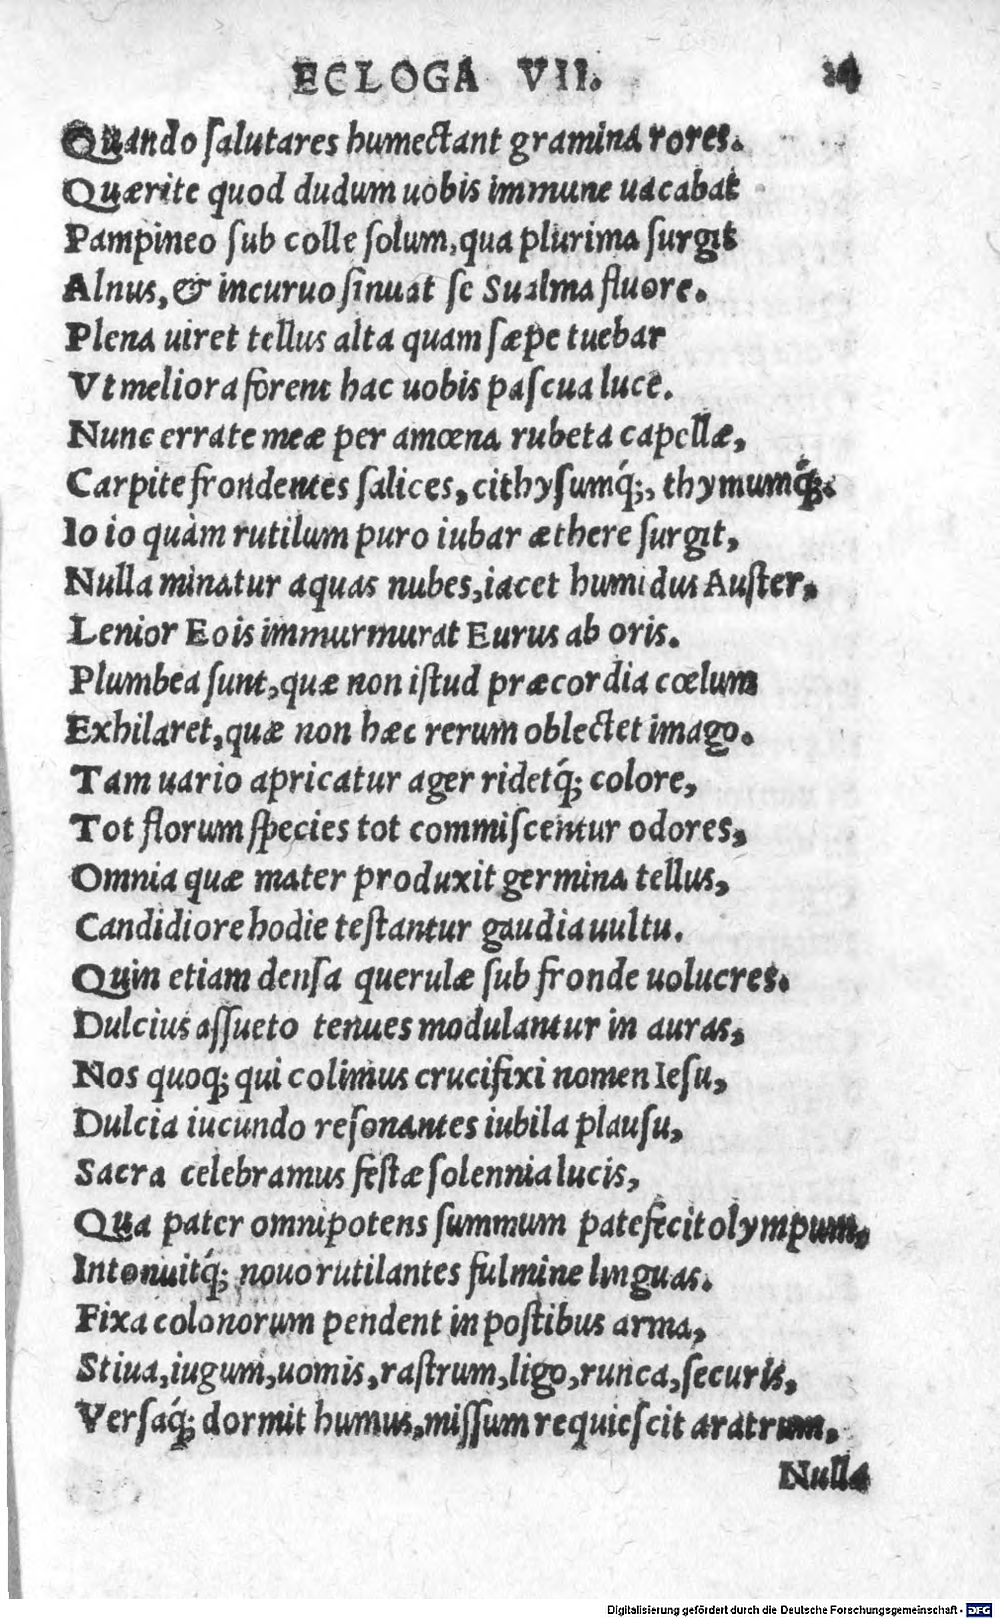 ECLOGA VII. 24
Quando ſalutares humectant gramina rores.
Quærite quod dudum uobis immune uacabat
Pampineo ſub colle ſolum, qua plurima ſurgit
Alnus, & incuruo ſinuat ſe Sualma fluore.
Plena uiret tellus alta quam ſæpe tuebar
Vt meliora forent hac uobis paſcua luce.
Nunc errate meæ per amœna rubeta capellæ,
Carpite frondentes ſalices, cithyſumq́;, thymumq́;.
Io io quàm rutilum puro iubar æthere ſurgit,
Nulla minatur aquas nubes, iacet humidus Auſter,
Lenior Eois immurmurat Eurus ab oris.
Plumbea ſunt, quæ non iſtud præcordia cœlum
Exhilaret, quæ non hæc rerum oblectet imago.
Tam uario apricatur ager ridetq́; colore,
Tot florum ſpecies tot commiſcentur odores,
Omnia quæ mater produxit germina tellus,
Candidiore hodie teſtantur gaudia uultu.
Quin etiam denſa querulæ ſub fronde uolucres.
Dulcius aſſueto tenues modulantur in auras,
Nos quoq; qui colimus crucifixi nomen Ieſu,
Dulcia iucundo reſonantes iubila plauſu,
Sacra celebramus feſtæ ſolennia lucis,
Qua pater omnipotens ſummum patefecit olympum,
Intonuitq́; nouo rutilantes fulmine linguas.
Fixa colonorum pendent in poſtibus arma,
Stiua, iugum, uomis, raſtrum, ligo, runca, ſecuris,
Verſaq́; dormit humus, miſſum requieſcit aratrum,
Nulla
Digitalisierung gefördert durch die Deutsche Forschungsgemeinschaft - DFG